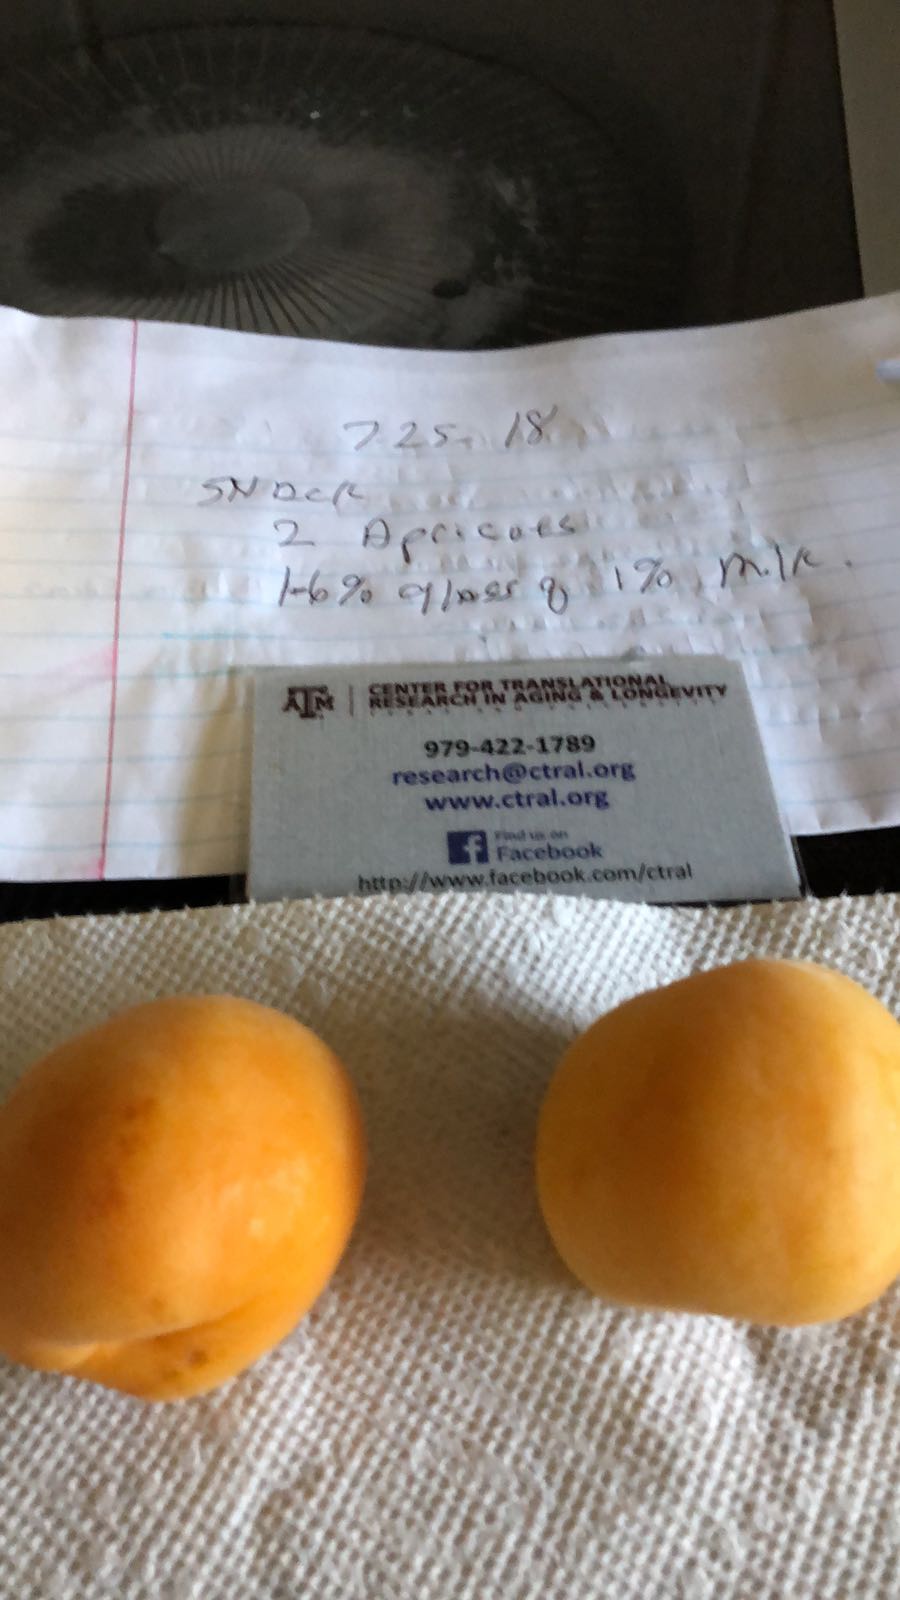 7.25.18
SNDCK
2 Apricots
1-6% glass of 1% milk.
ATM
CENTER FOR TRANSLATIONAL
RESEARCH IN AGING & LONGEVITY
979-422-1789
research@ctral.org
www.ctral.org
f Find us on
Facebook
http://www.facebook.com/ctral